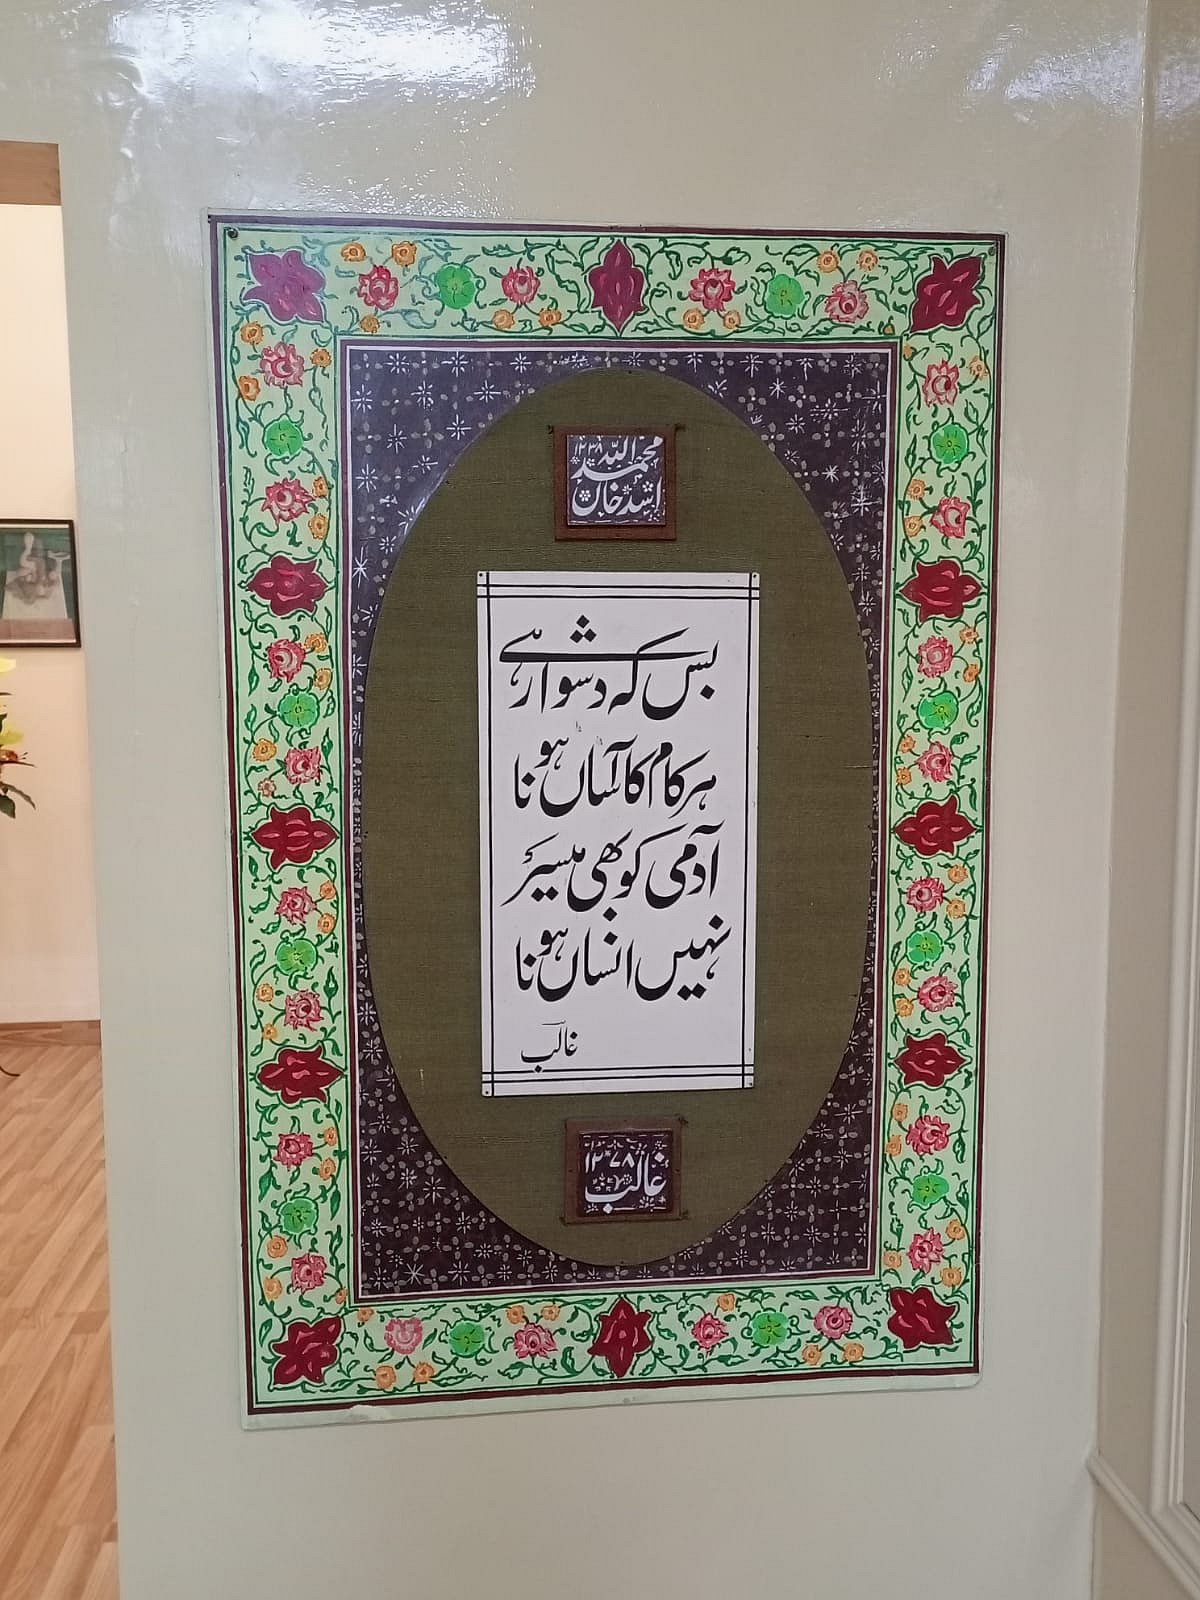 محمد اسد اللہ خان ۱۲۳۸
بس کہ دشوار ہے
ہر کام کا آساں ہونا
آدمی کو بھی میسر
نہیں انساں ہونا
غالب
۱۲۷۸
غالب